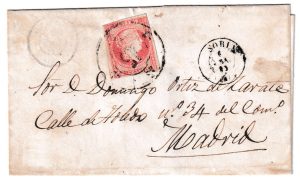 SORIA
Sor D. Domingo Ortiz de Zarate
Calle de Toledo nº 34 del Comº
Madrid